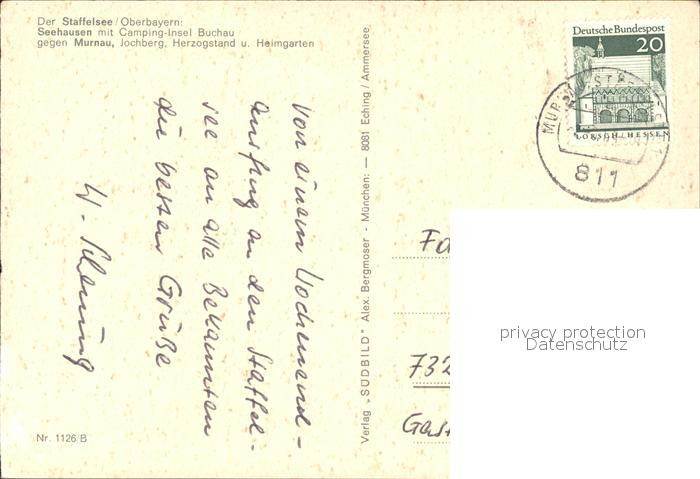 Der Staffelsee/Oberbayern:
Seehausen mit Camping-Insel Buchau
gegen Murnau, Jochberg, Herzogstand u. Heimgarten
Von einem Wochenend-
ausflug an den Staffel-
see an alle Bekannten
die besten Grüße
W.
Nr. 1126/B
Verlag „SÜDBILD" Alex. Bergmoser - München: — 8081 Eching / Ammersee
Deutsche Bundespost
20
LORSCH/HESSEN
811
Fa
732
Gast
privacy protection
Datenschutz